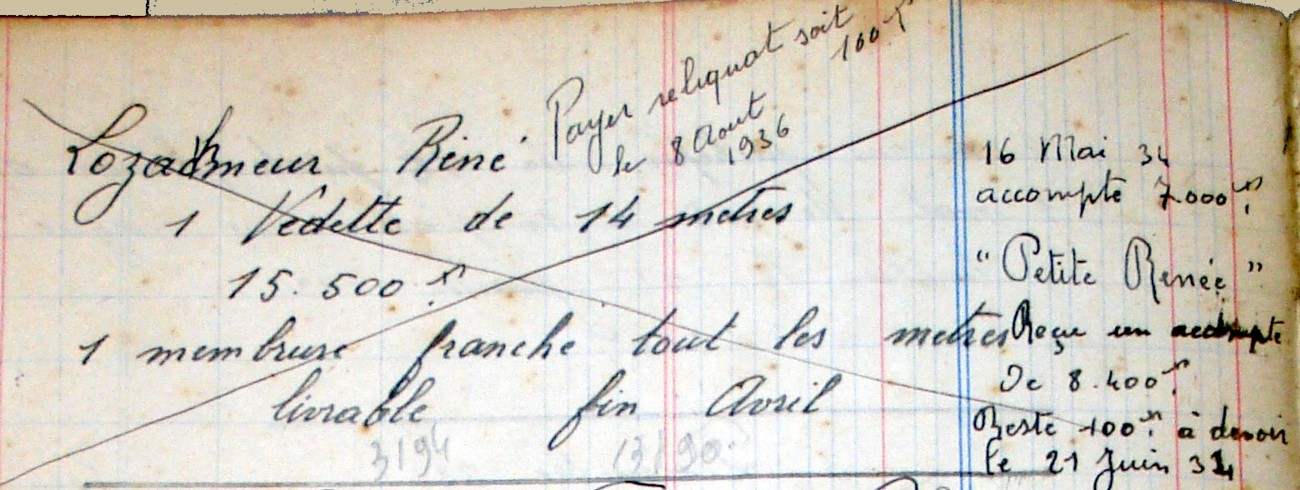 Payer reliquat soit
100 f
le 8 Aout
1936
Lozachmeur Réné
1 Vedette de 14 metres
15.500 f
1 membrure franche tout les metres
livrable fin Avril
3194 13190
16 Mai 34
accompte 7.000 f
"Petite Renée"
Reçu un accompte
De 8.400 f
Reste 100 f à devoir
le 21 Juin 34